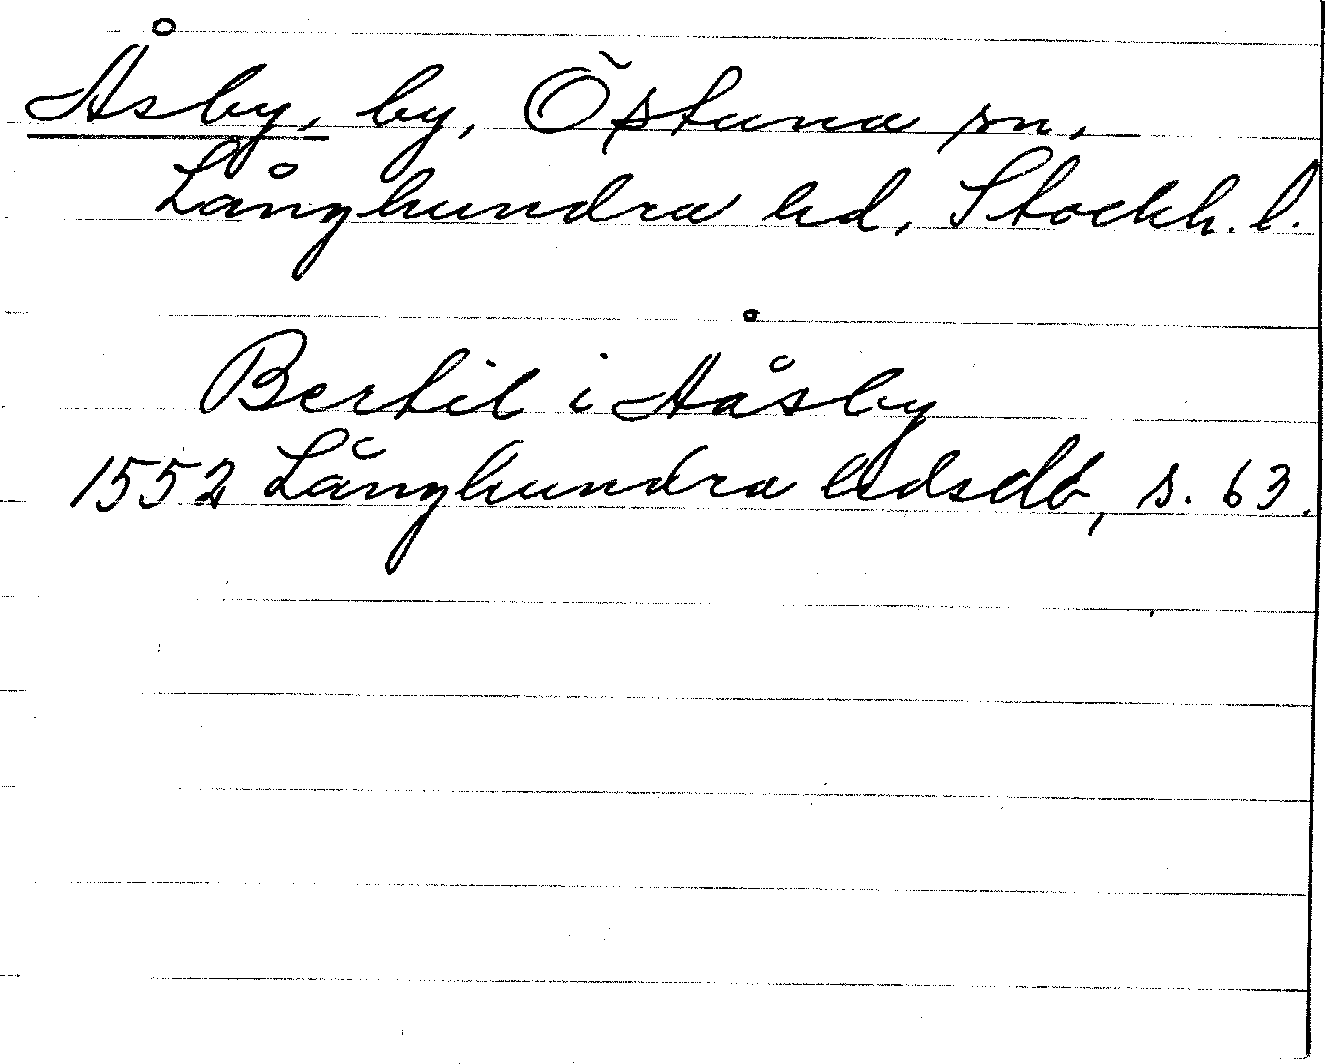 Åsby, by, Östuna sn,
Långhundra hd, Stockh. l.
Bertil i Ååsby
1552 Långhundra hdsdb, s. 63.